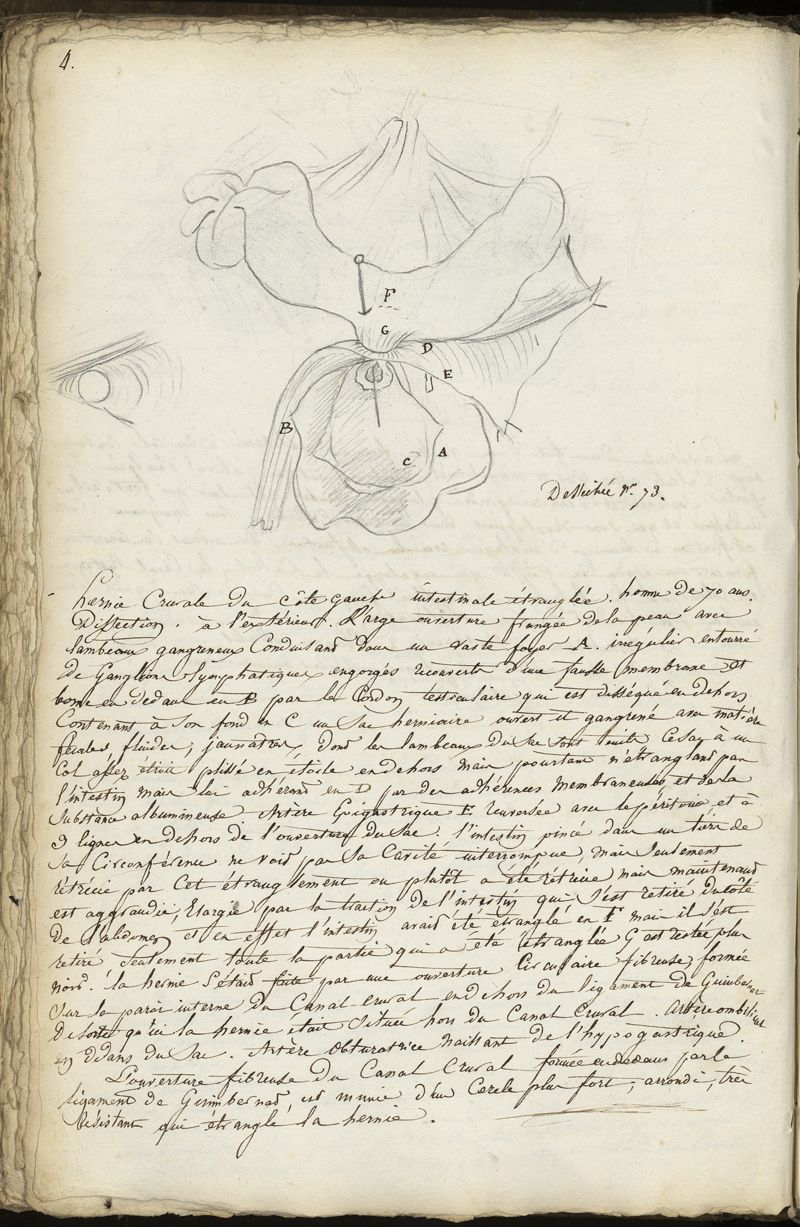 4.
F
G
D
E
B
C
A
Desséchée n.° 73.
hernie Crurale du Côté gauche intestinale étranglée. homme de 70 ans.
Dissection. à l'extérieur. Large ouverture frangée de la peau avec
lambeaux gangreneux Conduisant dans un vaste foyer A. irrégulier entouré
de Ganglions lymphatiques engorgés recouverts d'une fausse membrane et
borné en dedans en B par le Cordon testiculaire qui est disséqué en dehors
Contenant à Son fond en C un Sac herniaire ouvert et gangrené avec matière
fécales, fluides, jaunatres, dont les lambeaux du Sac sont Ce Sac à un
Col assez étroit plissé en étoile en dehors mais pourtant n'étranglant pas
l'intestin mais lui adhérent en D par des adhérences membraneuses et de la
Substance albumineuse. Artère Epigastrique E. renversée avec le péritoine et à
3 lignes en dehors de l'ouverture du Sac. l'intestin pincé dans un tiers de
Sa Circonférence ne voit pas Sa Cavité interrompue, mais Seulement
rétrécie par Cet étranglement ou plutôt a été rétrécie mais maintenant
est aggrandie, Elargie par la traction de l'intestin qui S'est retiré du côté
de l'abdomen et en effet l'intestin avait été étranglé en F mais il S'est
retiré Seulement toute la partie qui a été étranglée G est restée plus
noire. la hernie S'était faite par une ouverture Circulaire fibreuse, formée
Sur la paroi interne du Canal crural en dehors du ligament de Gimbernat
de sorte qu'ici la hernie était Située hors du Canal Crural. Artère ombilicale
en dedans du Sac. Artère Obturatrice naissant de l'hypogastrique.
L'ouverture fibreuse du Canal Crural formée en dedans par le
ligament de Gimbernat, est munie d'un Cercle plus fort, arrondi, très
Résistant qui étrangle la hernie.